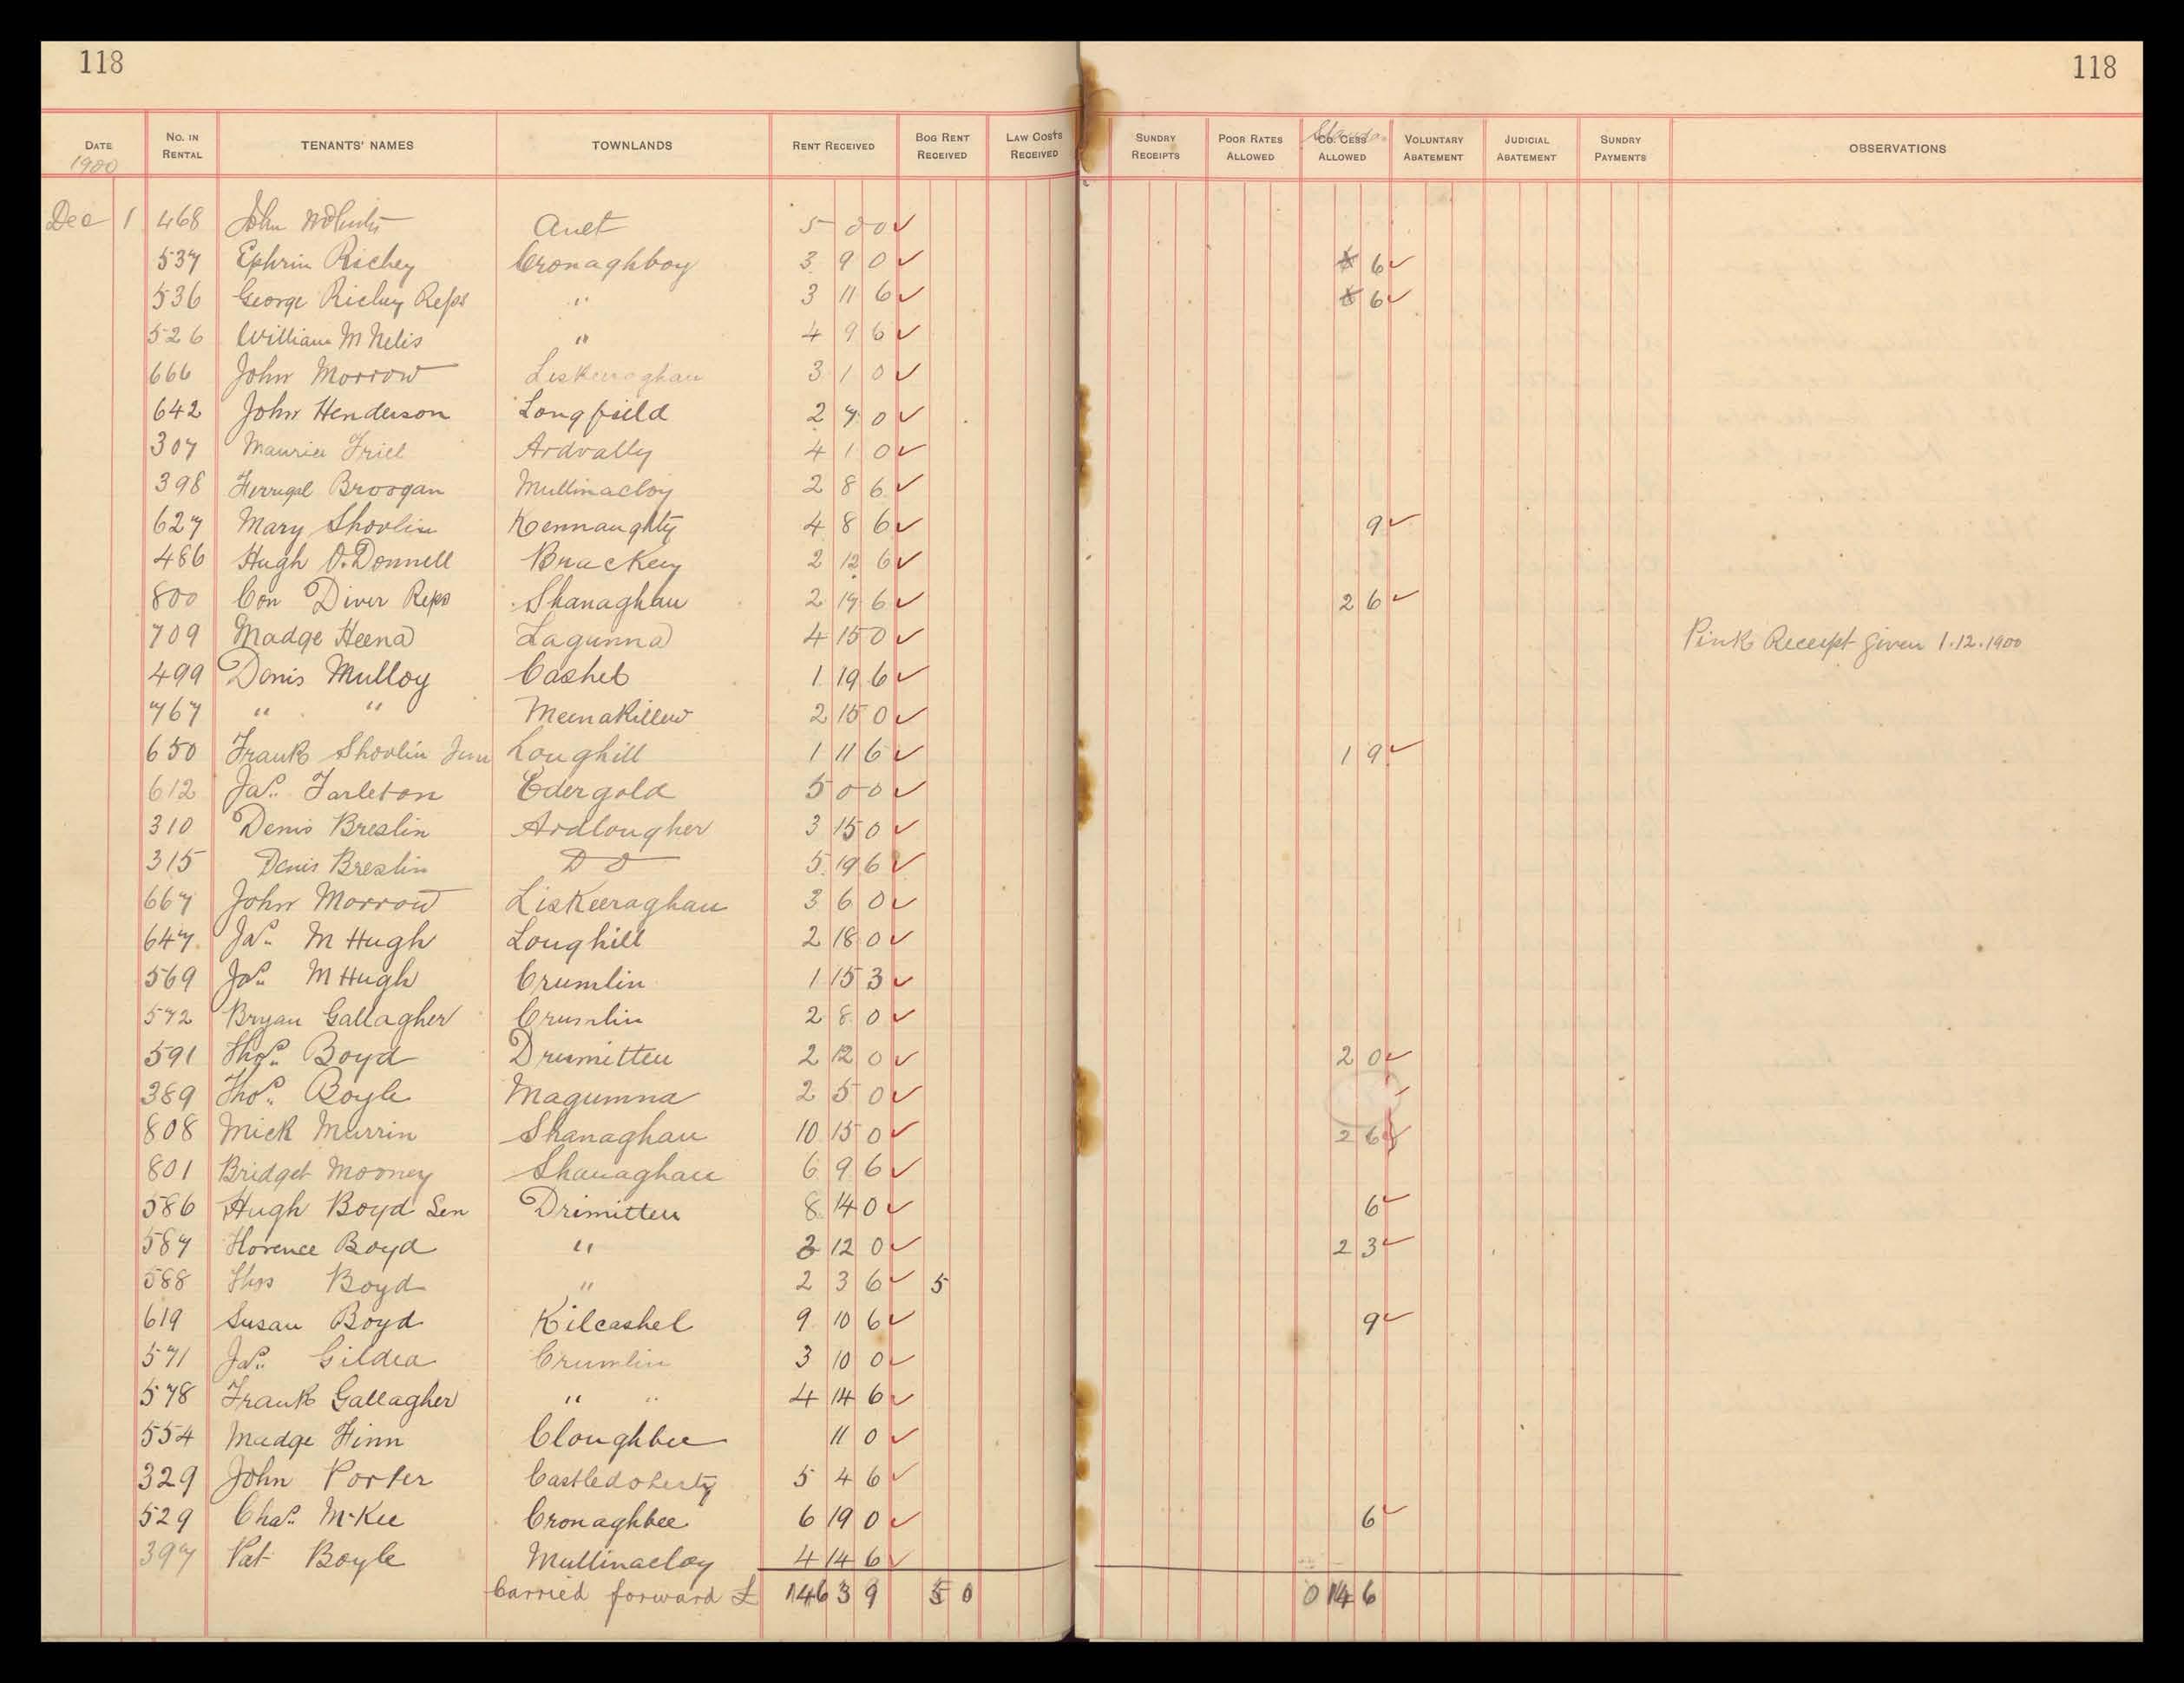 118 118
DATE 1900 No. IN RENTAL TENANTS' NAMES TOWNLANDS RENT RECEIVED BOG RENT RECEIVED LAW COSTS RECEIVED SUNDRY RECEIPTS POOR RATES ALLOWED CO. CESS ALLOWED VOLUNTARY ABATEMENT JUDICIAL ABATEMENT SUNDRY PAYMENTS OBSERVATIONS
Dec 1 468 John 5 0 0 ✓
537 Ephrim Richey Cronaghboy 3 9 0 ✓ 6 ✓
536 George Richey Reps " 3 11 6 ✓ 6 ✓
526 William M Nelis " 4 9 6 ✓
666 John Morrow Liskeeraghan 3 1 0 ✓
642 John Henderson Longfield 2 7 0 ✓
307 Maurice Friel Ardvally 4 1 0 ✓
398 Ferrigal Broogan Mullinacloy 2 8 6 ✓
627 Mary Shovlin Kennaughty 4 8 6 ✓ 9 ✓
486 Hugh O.Donnell Brackey 2 12 6 ✓
800 Con Diver Reps Shanaghan 2 17 6 ✓ 2 6 ✓
709 Madge Heena Lagunna 4 15 0 ✓ Pink Receipt given 1.12.1900
499 Denis Mulloy Cashel 1 19 6 ✓
767 " " Meenakillew 2 15 0 ✓
650 Frank Shovlin Jun Loughill 1 11 6 ✓ 1 9 ✓
612 Jas. Tarleton Edergold 5 0 0 ✓
310 Denis Breslin Ardlougher 3 15 0 ✓
315 Denis Breslin Do 5 19 6 ✓
667 John Morrow Liskeeraghan 3 6 0 ✓
647 Jas. M Hugh Loughill 2 18 0 ✓
569 Jas. M Hugh Crumlin 1 15 3 ✓
572 Bryan Gallagher Crumlin 2 8 0 ✓
591 Thos. Boyd Drumitten 2 12 0 ✓ 2 0 ✓
389 Thos. Boyle Magumna 2 5 0 ✓ ✓
808 Mick Murrin Shanaghan 10 15 0 ✓ 2 6 ✓
801 Bridget Mooney Shanaghan 6 9 6 ✓
586 Hugh Boyd Sen Drimitten 8 14 0 ✓ 6 ✓
587 Florence Boyd " 2 12 0 ✓ 2 3 ✓
588 Thos Boyd " 2 3 6 ✓ 5
619 Susan Boyd Kilcashel 9 10 6 ✓ 9 ✓
571 Jas. Gildea Crumlin 3 10 0 ✓
578 Frank Gallagher " " 4 14 6 ✓
554 Madge Finn Cloughbee 11 0 ✓
329 John Porter Castledoherty 5 4 6 ✓
529 Chas. McKee Cronaghbee 6 19 0 ✓ 6 ✓
397 Pat Boyle Mullinacloy 4 14 6 ✓
Carried forward £ 146 3 9 5 0 0 14 6